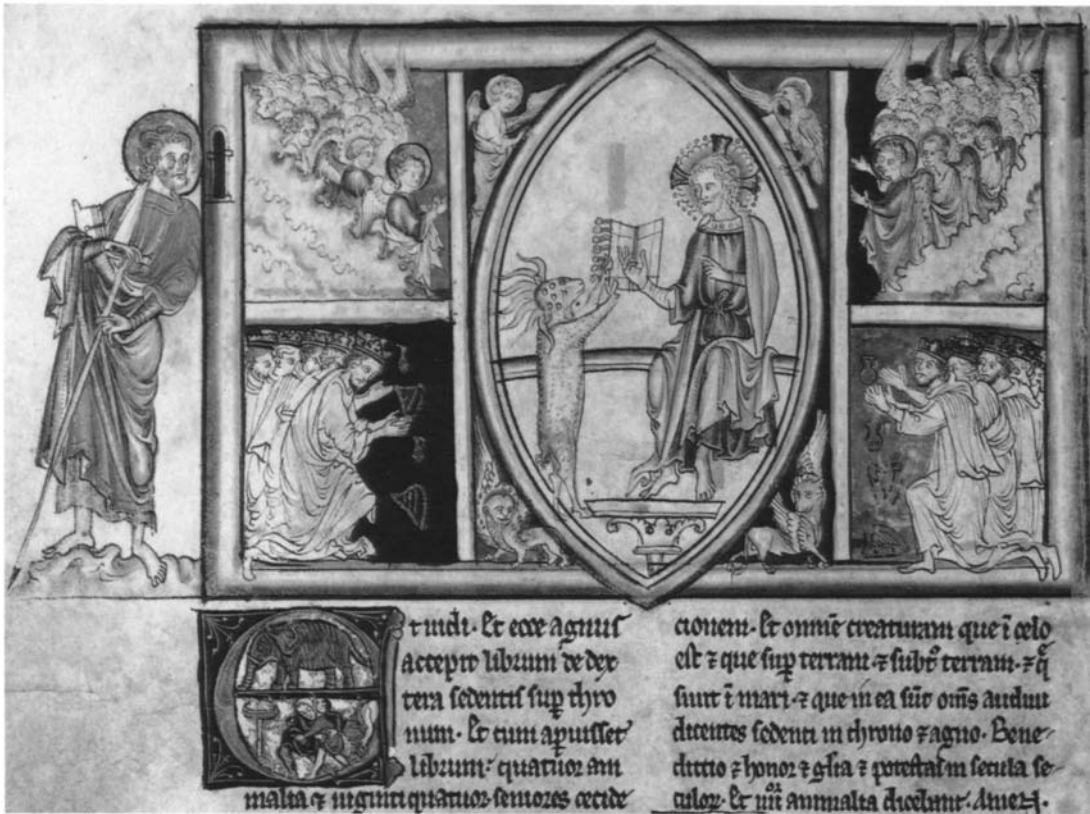 Et uidi. Et ecce agnus
accepit librum de dex
tera sedentis sup thro
num. Et cum apuisset
librum: quatuor ani
malia ⁊ uiginti quatuor seniores cecide
cionem. Et omnē creaturam que ī celo
est ⁊ que sup terram. ⁊ subt terram. ⁊ q̄
sunt ī mari. ⁊ que in ea sūt omīs audiui
dicentes sedenti in throno ⁊ agno. Bene
dictio ⁊ honor ⁊ glīa ⁊ potestas in secula se
culoꝝ. Et iiii animalia dicebant. Amen.